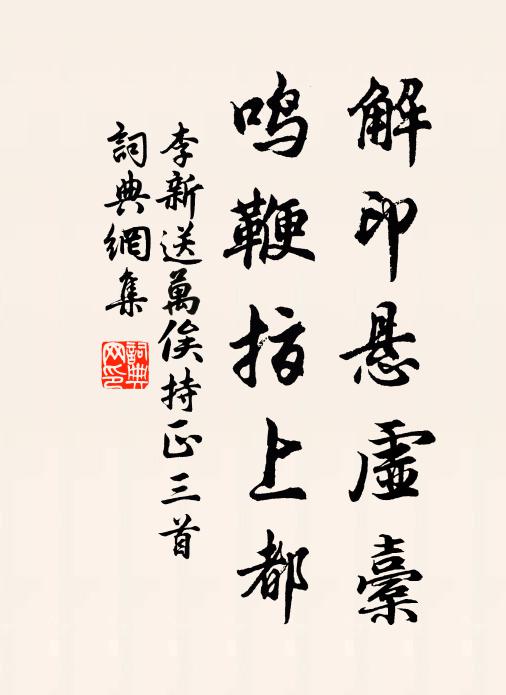 解印悬虚橐
鸣鞭指上都
李新送萬俟持正三首
詞典網集
詞典網印